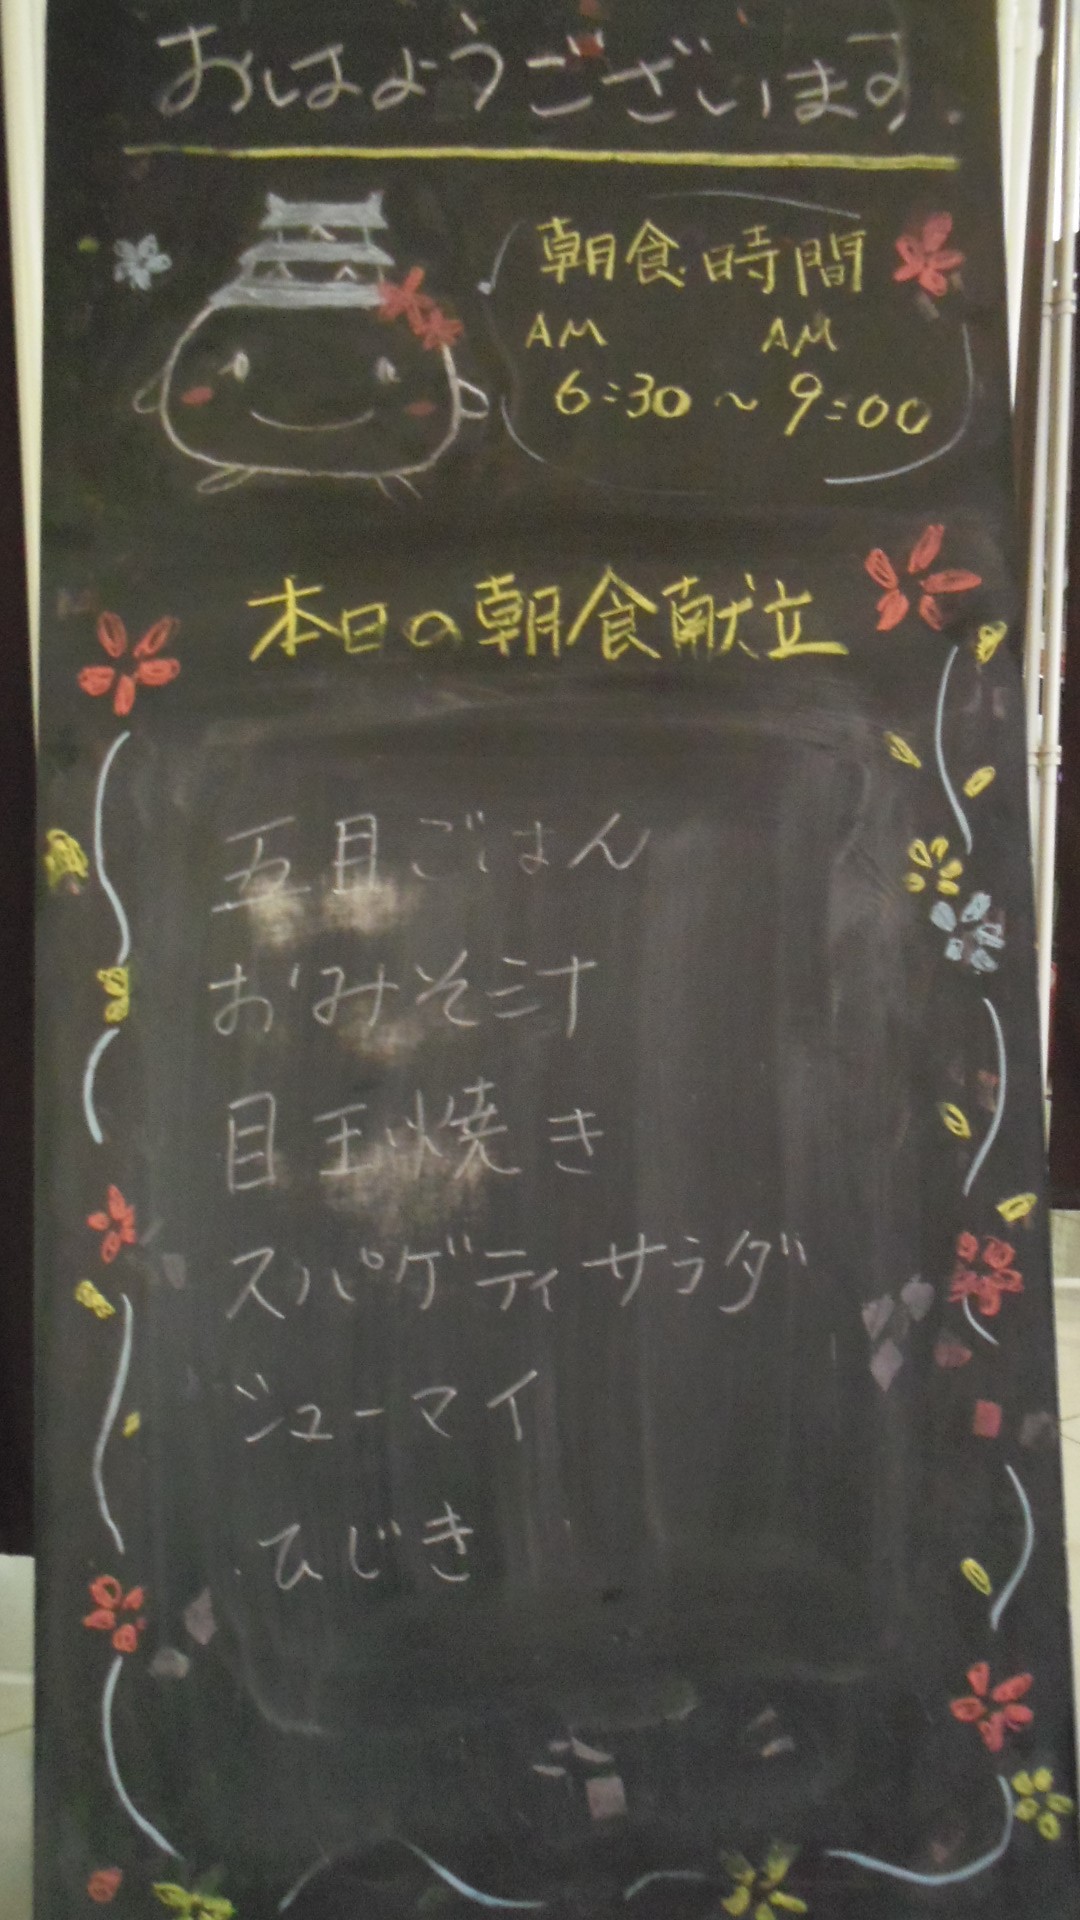 おはようございます.
朝食時間
AM AM
6:30 ~ 9:00
本日の朝食献立
五目ごはん
おみそ汁
目玉焼き
スパゲティサラダ
シューマイ
ひじき